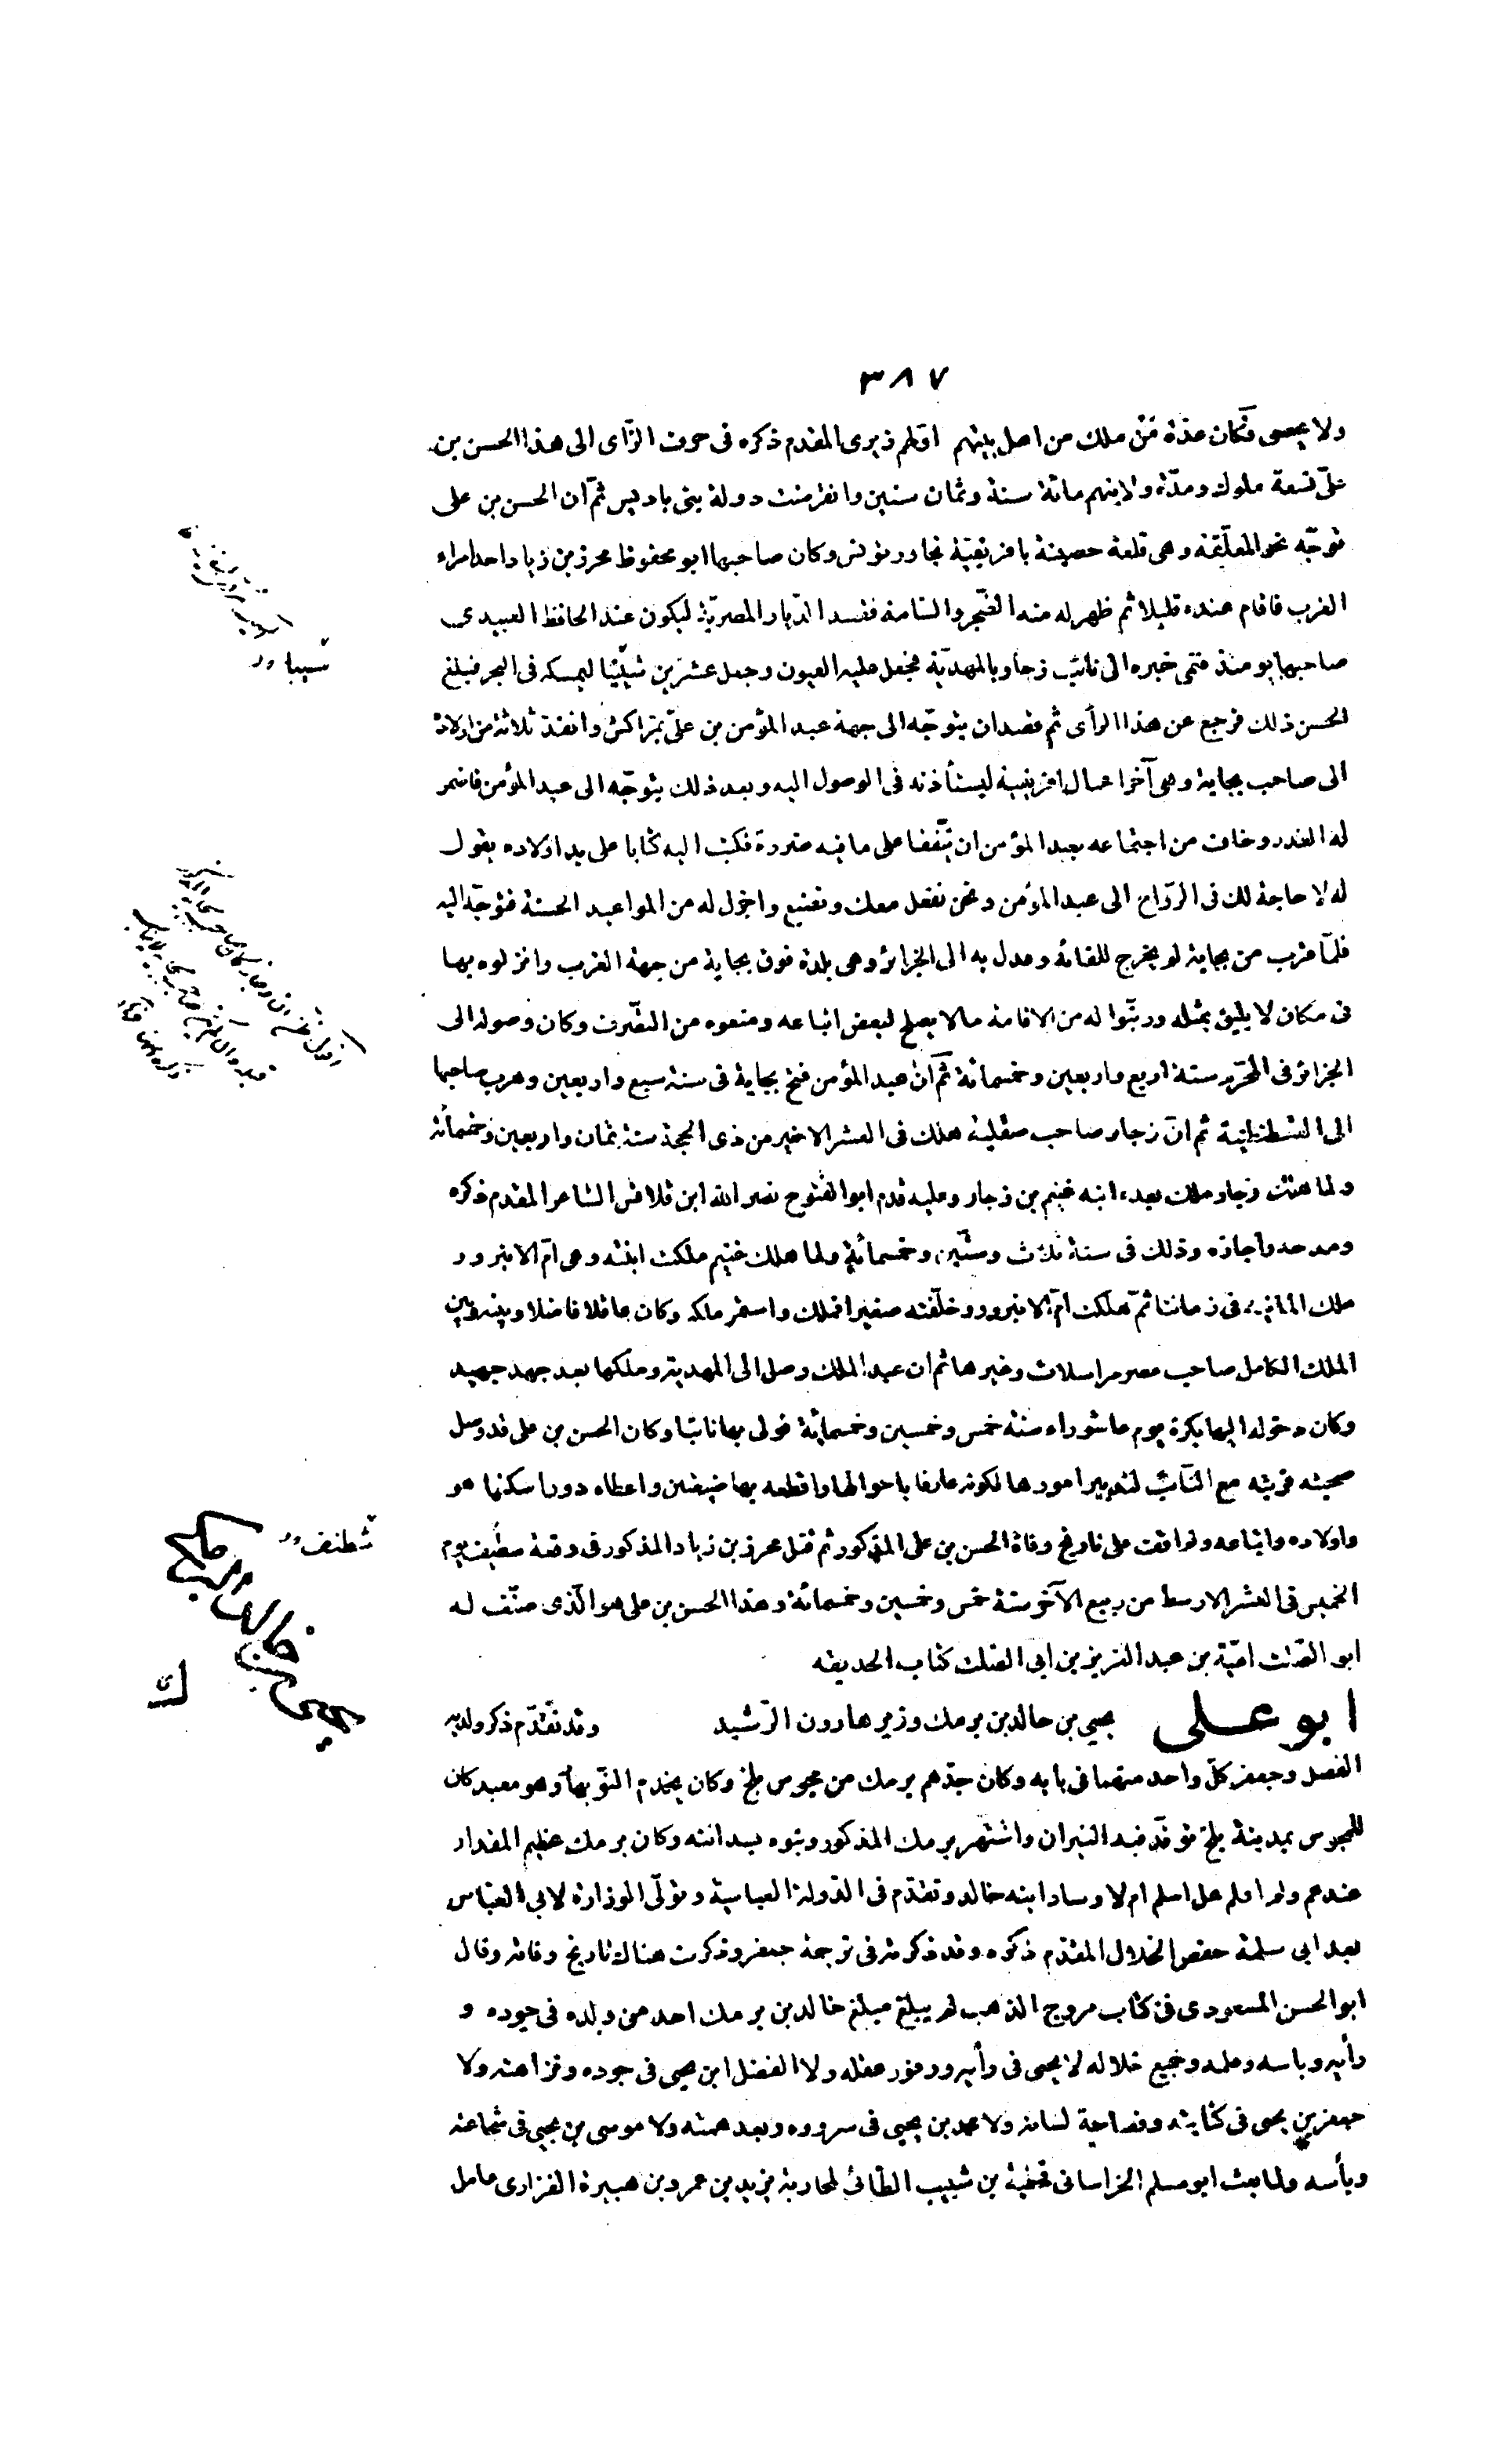 ٣٨٧
ولا يحصى فكان عدّة من ملك من اهل بيتهم اولهم زيرى المقدم ذكره فى حرف الزّاى الى هذا الحسن بن
علىّ تسعة ملوك ومدّة ولايتهم مائة سنة وثمان سنين وانقرضت دولة بنى باديس ثمّ ان الحسن بن على
توجّه نحو المعلّقة وهى قلعة حصينة بافريقيّة تجاور تونس وكان صاحبها ابو محفوظ محرز بن زياد احد امراء
العرب فاقام عنده قليلا ثم ظهر له منه الضّجر والسّامة فقصد الدّيار المصريّة ليكون عند الحافظ العبيدى
صاحبها يومئذ فنمى خبره الى نائب زجار بالمهديّة فجعل عليه العيون وجعل عشرين شينيّا ليمسكه فى البحر فبلغ
الحسن ذلك فرجع عن هذا الرأى ثم قصد ان يتوجّه الى جهة عبد المؤمن بن علىّ بمراكش وانفذ ثلاثة من اولاده
الى صاحب بجاية وهى آخر اعمال افريقية ليستأذنه فى الوصول اليه وبعد ذلك يتوجّه الى عبد المؤمن فاضمر
له الغدر وخاف من اجتماعه بعبد المؤمن ان يتّفقا على ما فيه ضررة فكتب اليه كتابا على يد اولاده يقول
له لا حاجة لك فى الرّواح الى عبد المؤمن ونحن نفعل معك ونصنع واجزل له من المواعيد الحسنة فتوجّه اليه
فلمّا قرب من بجاية لم يخرج للقائه وعدل به الى الجزائر وهى بلدة فوق بجاية من جهة الغرب وانزلوه بها
فى مكان لا يليق بمثله ورتّبوا له من الاقامة مالا يصلح لبعض اتباعه ومنعوه من التصّرف وكان وصوله الى
الجزائر فى المحّرم سنة اربع واربعين وخمسمائة ثمّ انّ عبد المؤمن فتح بجاية فى سنة سبع واربعين وهرب صاحبها
الى القسطنطينية ثم انّ زجار صاحب صقلية هلك فى العشر الاخير من ذى الحجة سنة ثمان واربعين وخمسمأئة
ولما هلك زجار ملك بعده ابنه غنيم بن زجار وعليه قدم ابو الفتوح نصر الله ابن قلاقس الشاعر المقدم ذكره
ومدحه واجازه وذلك فى سنة ثلاث وستّين وخمسمائة ولما هلك غنيم ملكت ابنته وهى امّ الانبرور
ملك المانيه فى زماننا ثمّ هلكت امّ الانبرور وخلّفته صغيرا فملك واستمر ملكه وكان عاقلا فاضلا وبينه وبين
الملك الكامل صاحب مصر مراسلات وغيرها ثم ان عبد الملك وصل الى المهدية وملكها بعد جهد جهيد
وكان دخوله اليها بكرة يوم عاشوراء سنة خمس وخمسين وخمسمائة فولى بها نائبا وكان الحسن بن على قد وصل
صحبته فرتبه مع النّائب لتدبير امورها لكونه عارفا باحوالها واقطعه بها ضيعتين واعطاه دورا سكنها هو
واولاده واتباعه ولم اقف على تاريخ وفاة الحسن بن على المذكور ثم قتل محرز بن زياد المذكور فى وقعة سطيف يوم
الخميس فى العشر الاوسط من ربيع الآخر سنة خمس وخمسين وخمسمائة وهذا الحسن بن على هو الّذى صنّف له
ابو الصّلت اميّة بن عبد العزيز بن ابى الصّلت كتاب الحديقه
ابو على يحيى بن خالد بن برمك وزير هارون الرّشيد وقد تقدّم ذكر ولديه
الفضل وجعفر كلّ واحد منهما فى بابه وكان جدّهم برمك من مجوس بلخ وكان يخدم النوّبهار وهو معبد كان
للمجوس بمدينة بلخ توقد فيه النيران واشتهر برمك المذكور وبنوه بسدانته وكان برمك عظيم المقدار
عندهم ولم اعلم هل اسلم ام لا وساد ابنه خالد وتقدّم فى الدّولة العباسية وتولّى الوزارة لابى العبّاس
بعد ابى سلمة حفص الخلال المقدّم ذكره وقد ذكرته فى ترجمة جعفر وذكرت هناك تاريخ وفاته وقال
ابو الحسن المسعودى فى كتاب مروج الذهب لم يبلغ مبلغ خالد بن برمك احد من ولده فى جوده و
رأيه وباسه وعلمه وجميع خلاله لا يحيى فى رأيه ووفور عقله ولا الفضل ابن يحيى فى جوده ونزاهته ولا
جعفر بن يحيى فى كتابته وفصاحة لسانه ولا محمد بن يحيى فى سروه وبعد همته ولا موسى بن يحيى فى شجاعته
وبأسه ولما بعث ابو مسلم الخراسانى قحطبة بن شبيب الطّائى لمحاربة يزيد بن عمرو بن هبيرة الفزارى عامل
يحيى بن خالد البرمكى